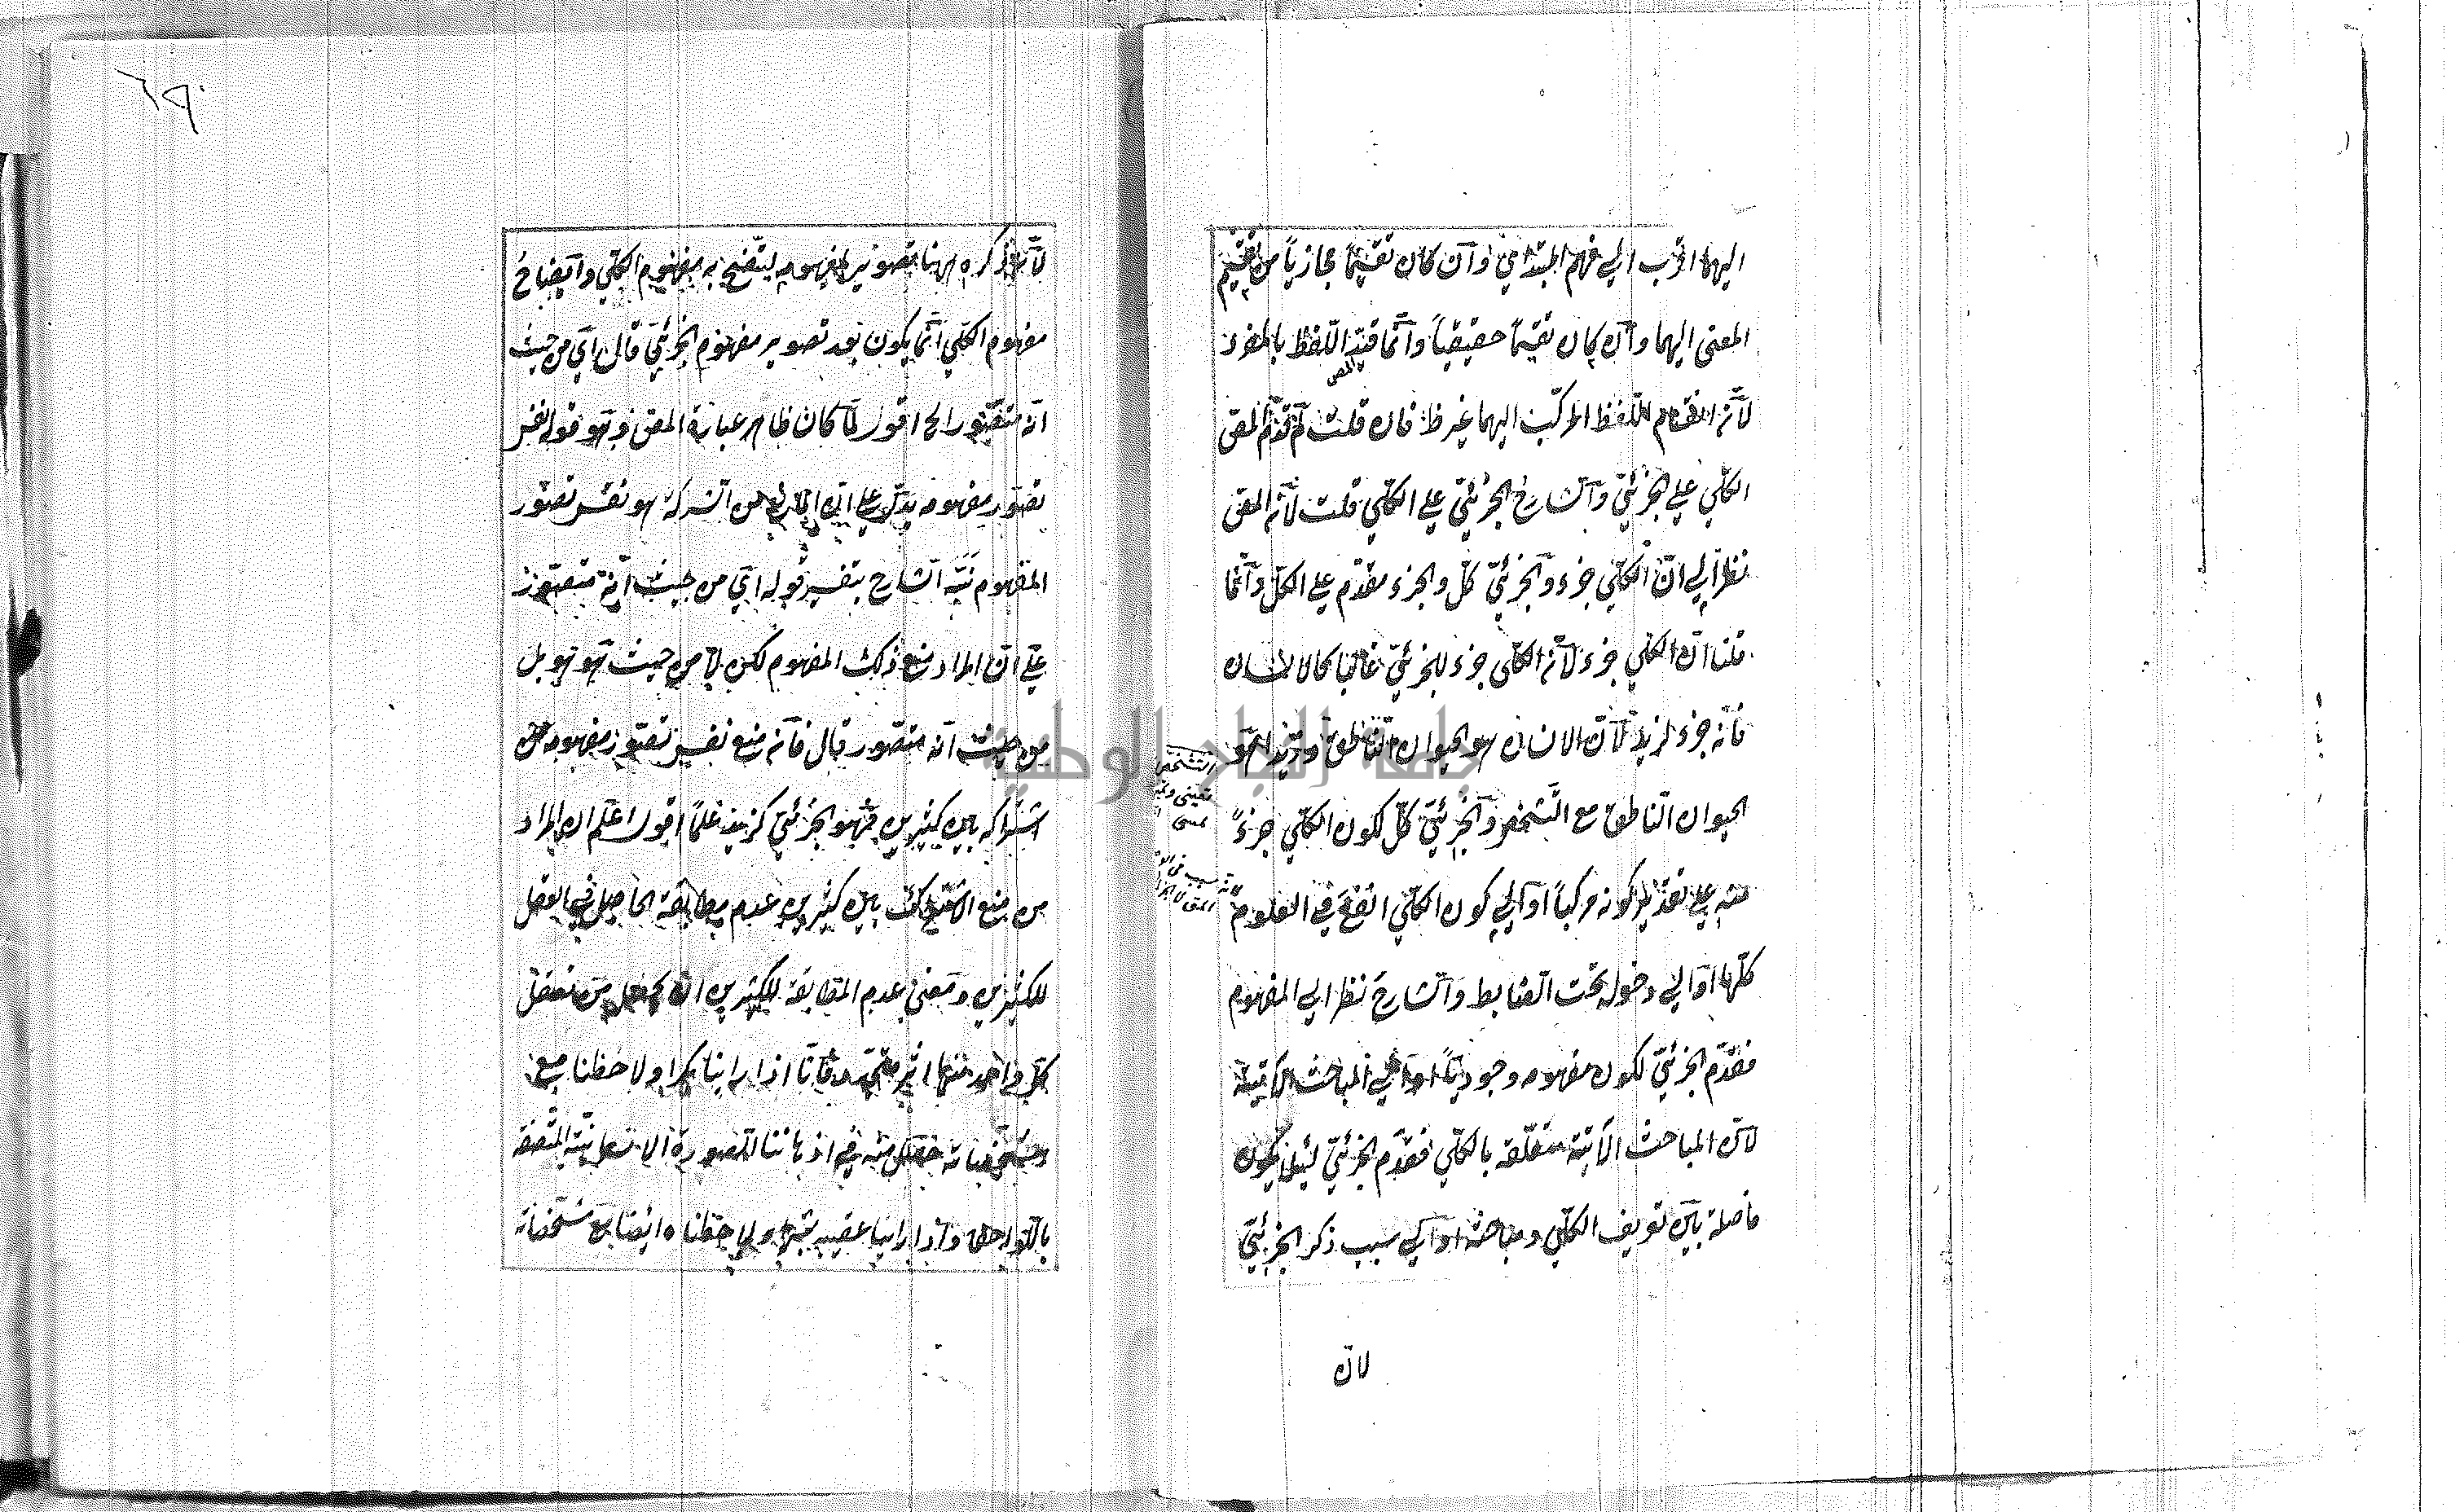 اليهما اقرب الي فهم المبتدائي وآن كان تقسيمًا مجازيًا من تقسيم
المعنى اليهما وآن كان تقسيمًا حقيقيًا وآنّما قيّد اللّفظ بالمفرد
لآنّه انقسام اللّفظ المركّب اليهما غير ظ فان قلت لم قدّم المص
الكلّي علي الجزئيّ وآلشارح الجزئيّ علي الكلّي قلت لآنّه المص
نظر الي انّ الكلّي جزء وآلجزئيّ كلّ والجزء مقدّم علي الكلّ وآنّما
قلنا انّ الكلّي جزء لآنّه الكلّي جزء للجزئيّ غالبا كالانسان
فانّه جزء لزيد لآنّ الانسان هو الحيوان النّاطق وزيد هو
الحيوان النّاطق مع التّشخص وآلجزئيّ كلّ لكون الكلّي جزءً
منه علي تقدير كونه مركبًا اوآلي كون الكلّي انفع في العلوم
كلّها اوآلي دخوله تحت الضابط وآلشارح نظر الي المفهوم
فقدّم الجزئيّ لكون مفهومه وجوديًا اوآلي المباحث الآتية
لآنّ المباحث الآتية متعلّقة بالكلّي فقدّم الجزئيّ لئلّا يكون
فاصلة بين تعريف الكلّي ومباحثه اوآلي سبب ذكر الجزئيّ
لانّ
لآنّه ذكره ههنا تصوير لمفهومه ليتّضح به مفهوم الكلّي وآيضاح
مفهوم الكلّي انّما يكون بعد تصوير مفهوم الجزئيّ قال اي من حيث
انّه متصّور الخ اقول لمّا كان ظاهر عبارة المص وهو قوله نفس
تصوّر مفهومه يدلّ علي انّ المانع من الشركة هو نفس تصوّر
المفهوم نبّه الشارح بتفسير قوله اي من حيث انّه متصّور
علي انّ المراد منع ذلك المفهوم لكن لا من حيث هو هو بل
من حيث انّه متصّور قال فآنّه منع نفس تصّور مفهومه من
اشتراكه بين كثيرين فهو الجزئيّ كزيد علمًا اقول اعلم ان المراد
من منع الاشتراك بين كثيرين عدم مطابقة الحاصل في العقل
للكثيرين ومعنى عدم المطابقة للكثيرين انّه من تعقل
كلّ واحد منها اثر متجدّد فآنّا اذا راينا بكرا ولاحظنا مع
مشخصاته حصل منه في اذهاننا الصورة الانسانية المتصفة
باللواحق واذا راينا عقيبه ولاحظناه ايضا مع مشخصاته